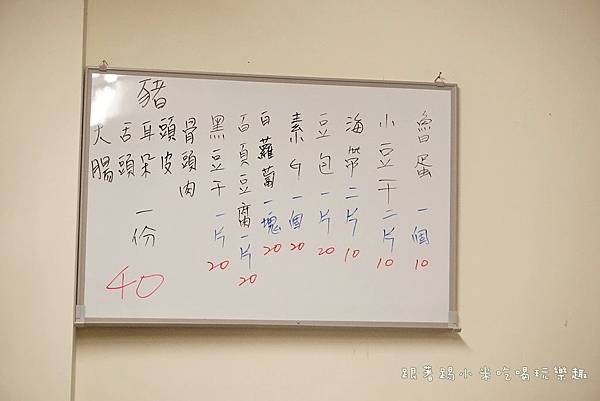 魯蛋 一個 10
小豆干 二片 10
海帶 二片 10
豆包 一片 20
素G 一個 20
白蘿蔔 一塊 20
百頁豆腐 一片 20
黑豆干 一片 20
豬
骨頭肉
頭皮
耳朵
舌頭
大腸
一份
40
跟著踢小米吃喝玩樂趣